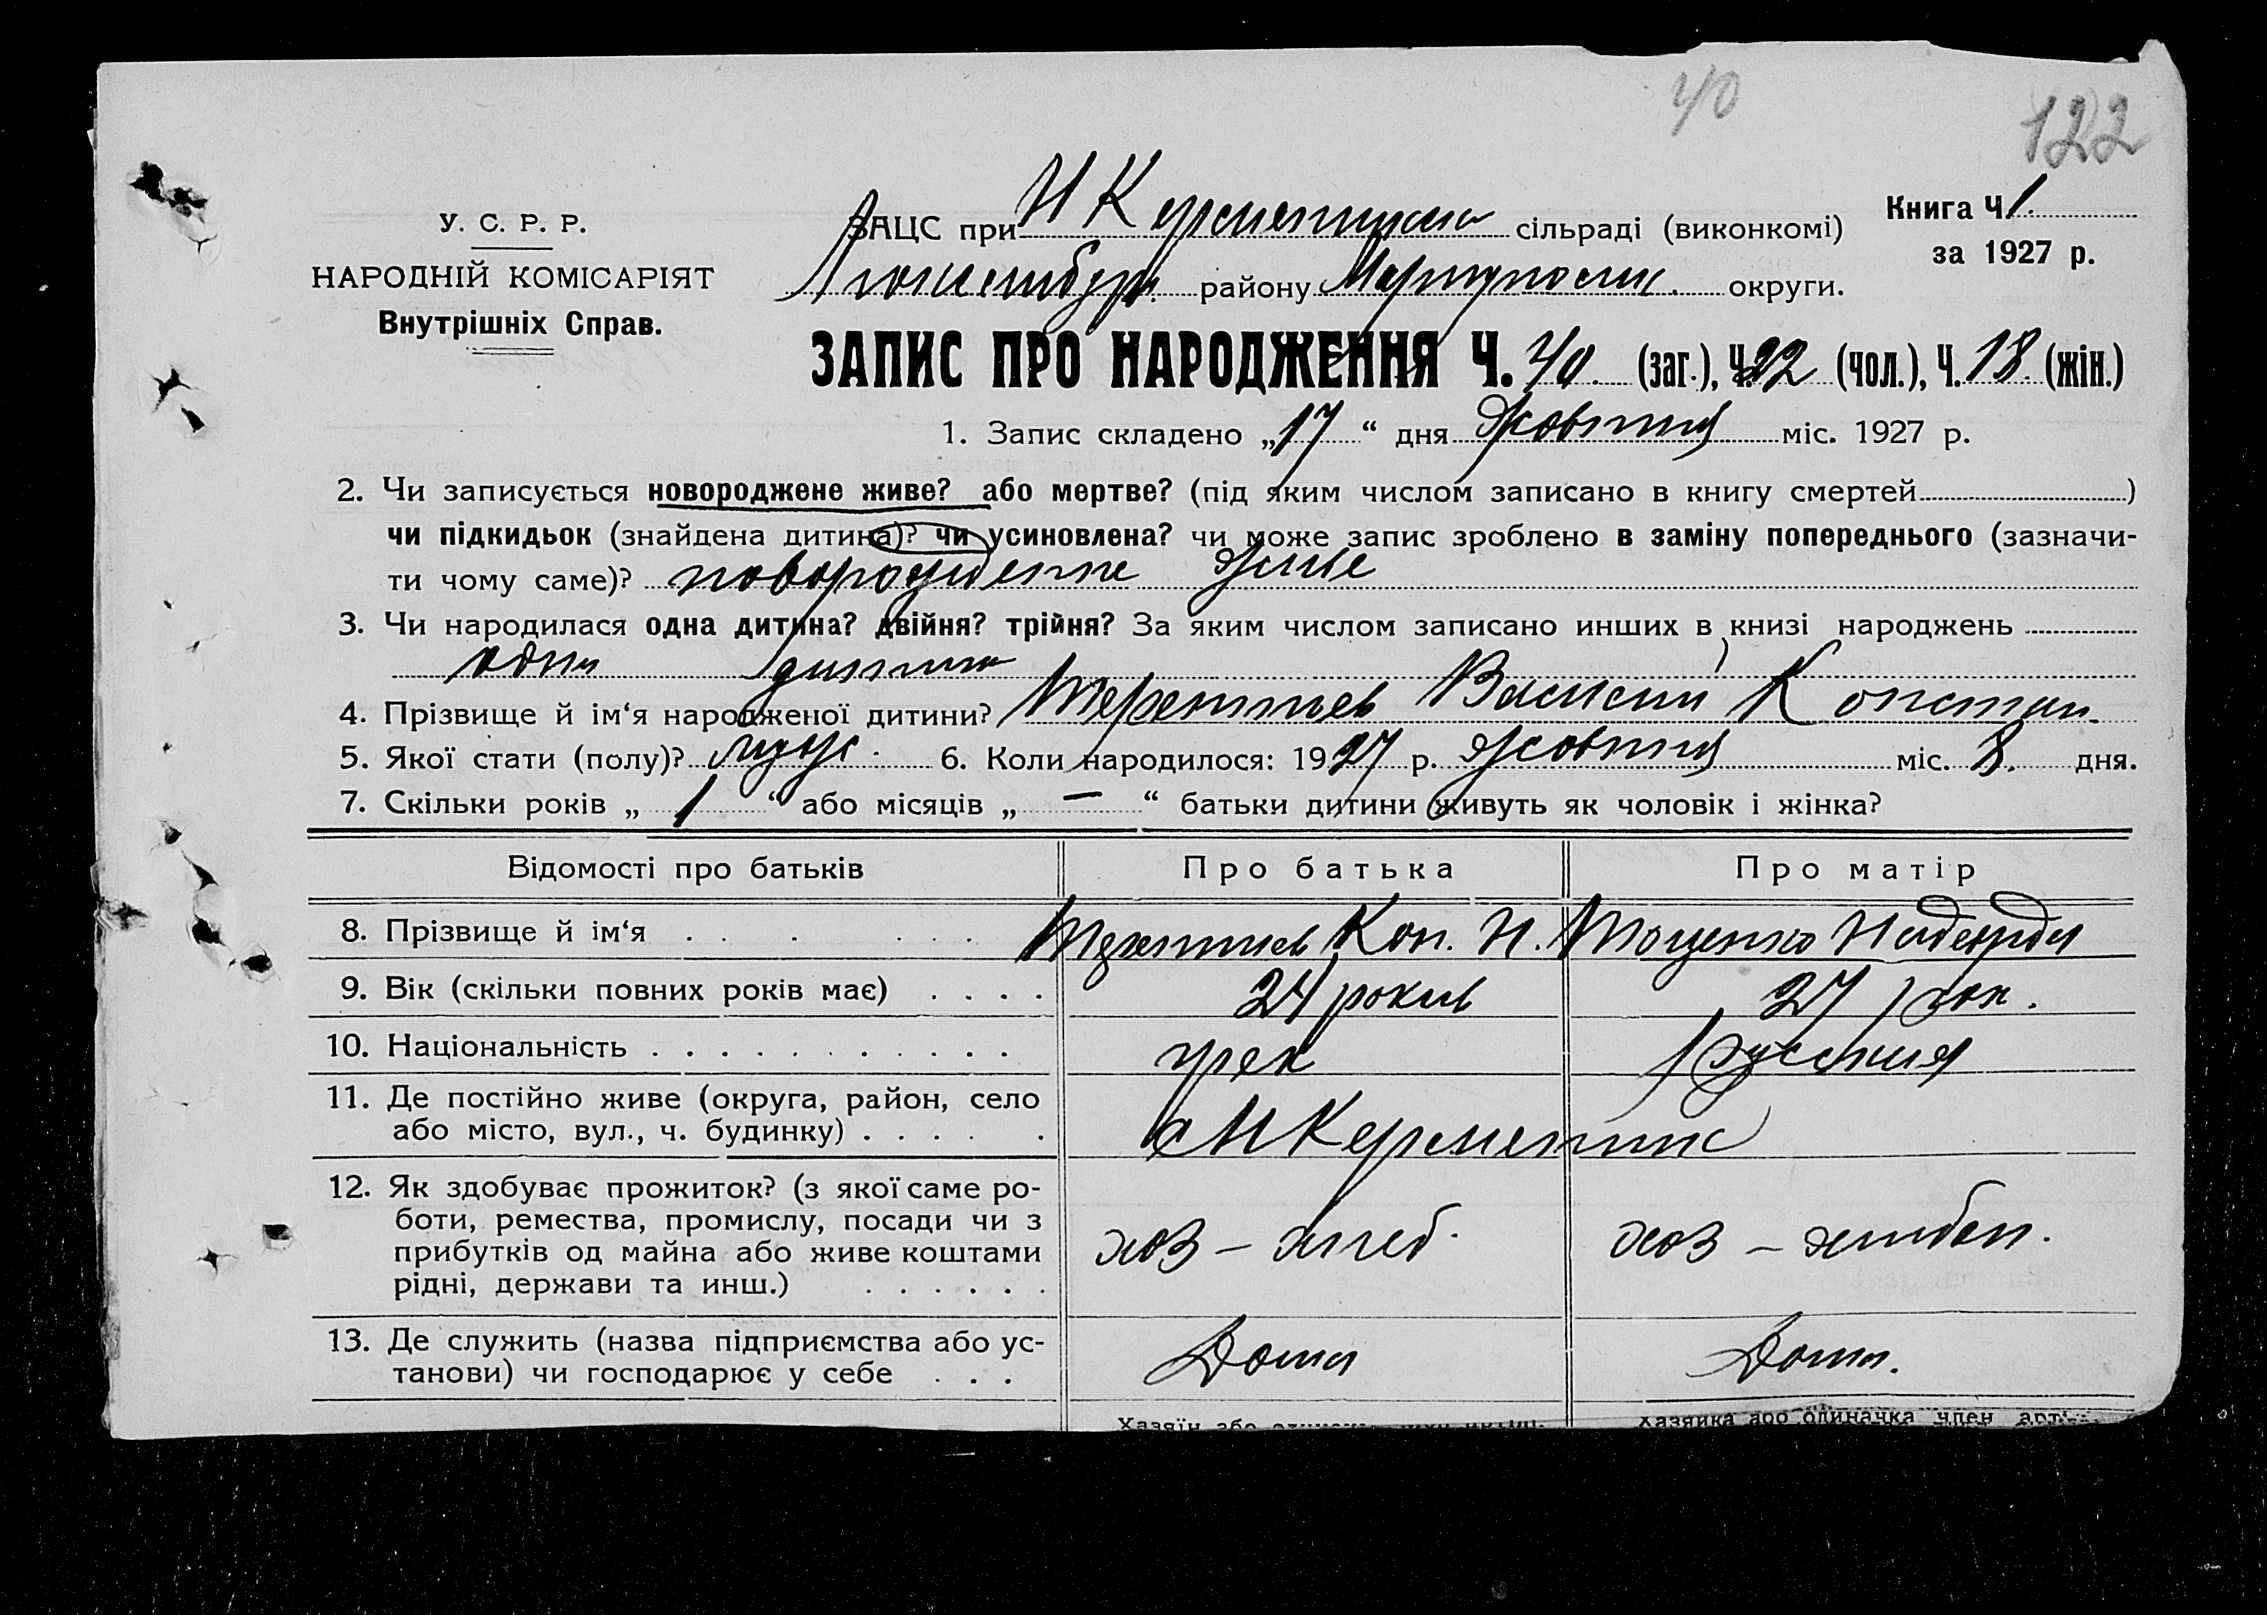 40
122
У. С. Р. Р.
НАРОДНІЙ КОМІСАРІЯТ
Внутрішніх Справ.
ЗАЦС при Н Керменчик сільраді (виконкомі)
Книга Ч. 1.
за 1927 р.
району Мариупольс. округи.
ЗАПИС ПРО НАРОДЖЕННЯ Ч. 40. (заг.), Ч. 22 (чол.), Ч. 18. (жін.)
1. Запис складено „17“ дня Жовтня міс. 1927 р.
2. Чи записується новороджене живе? або мертве? (під яким числом записано в книгу смертей )
чи підкидьок (знайдена дитина)? чи усиновлена? чи може запис зроблено в заміну попереднього (зазначи-
ти чому саме)? новорожденне живе
3. Чи народилася одна дитина? двійня? трійня? За яким числом записано инших в книзі народжень
одна дитина
4. Прізвище й ім‘я народженої дитини? Терентьев Василий Констан.
5. Якої стати (полу)? муж. 6. Коли народилося: 1927 р. Жовтня міс. 8. дня.
7. Скільки років „ 1 “ або місяців „ — “ батьки дитини живуть як чоловік і жінка?
Відомості про батьків Про батька Про матір
8. Прізвище й ім‘я . . . . . . Терентьев Кон. Н. Тоценко Надежда
9. Вік (скільки повних років має) . . . . 24 рокив 27 рок.
10. Національність . . . . . . . . . . . . грек русския
11. Де постійно живе (округа, район, село
або місто, вул., ч. будинку) . . . . . с Н Керменчик
12. Як здобуває прожиток? (з якої саме ро-
боти, ремества, промислу, посади чи з
прибутків од майна або живе коштами
рідні, держави та инш.) . . . . . .
хоз — хлеб. хоз — хлибоп.
13. Де служить (назва підприємства або ус-
танови) чи господарює у себе . . .
Дома Дома.
Хазяїн або
Хазяйка або одиначка член арт